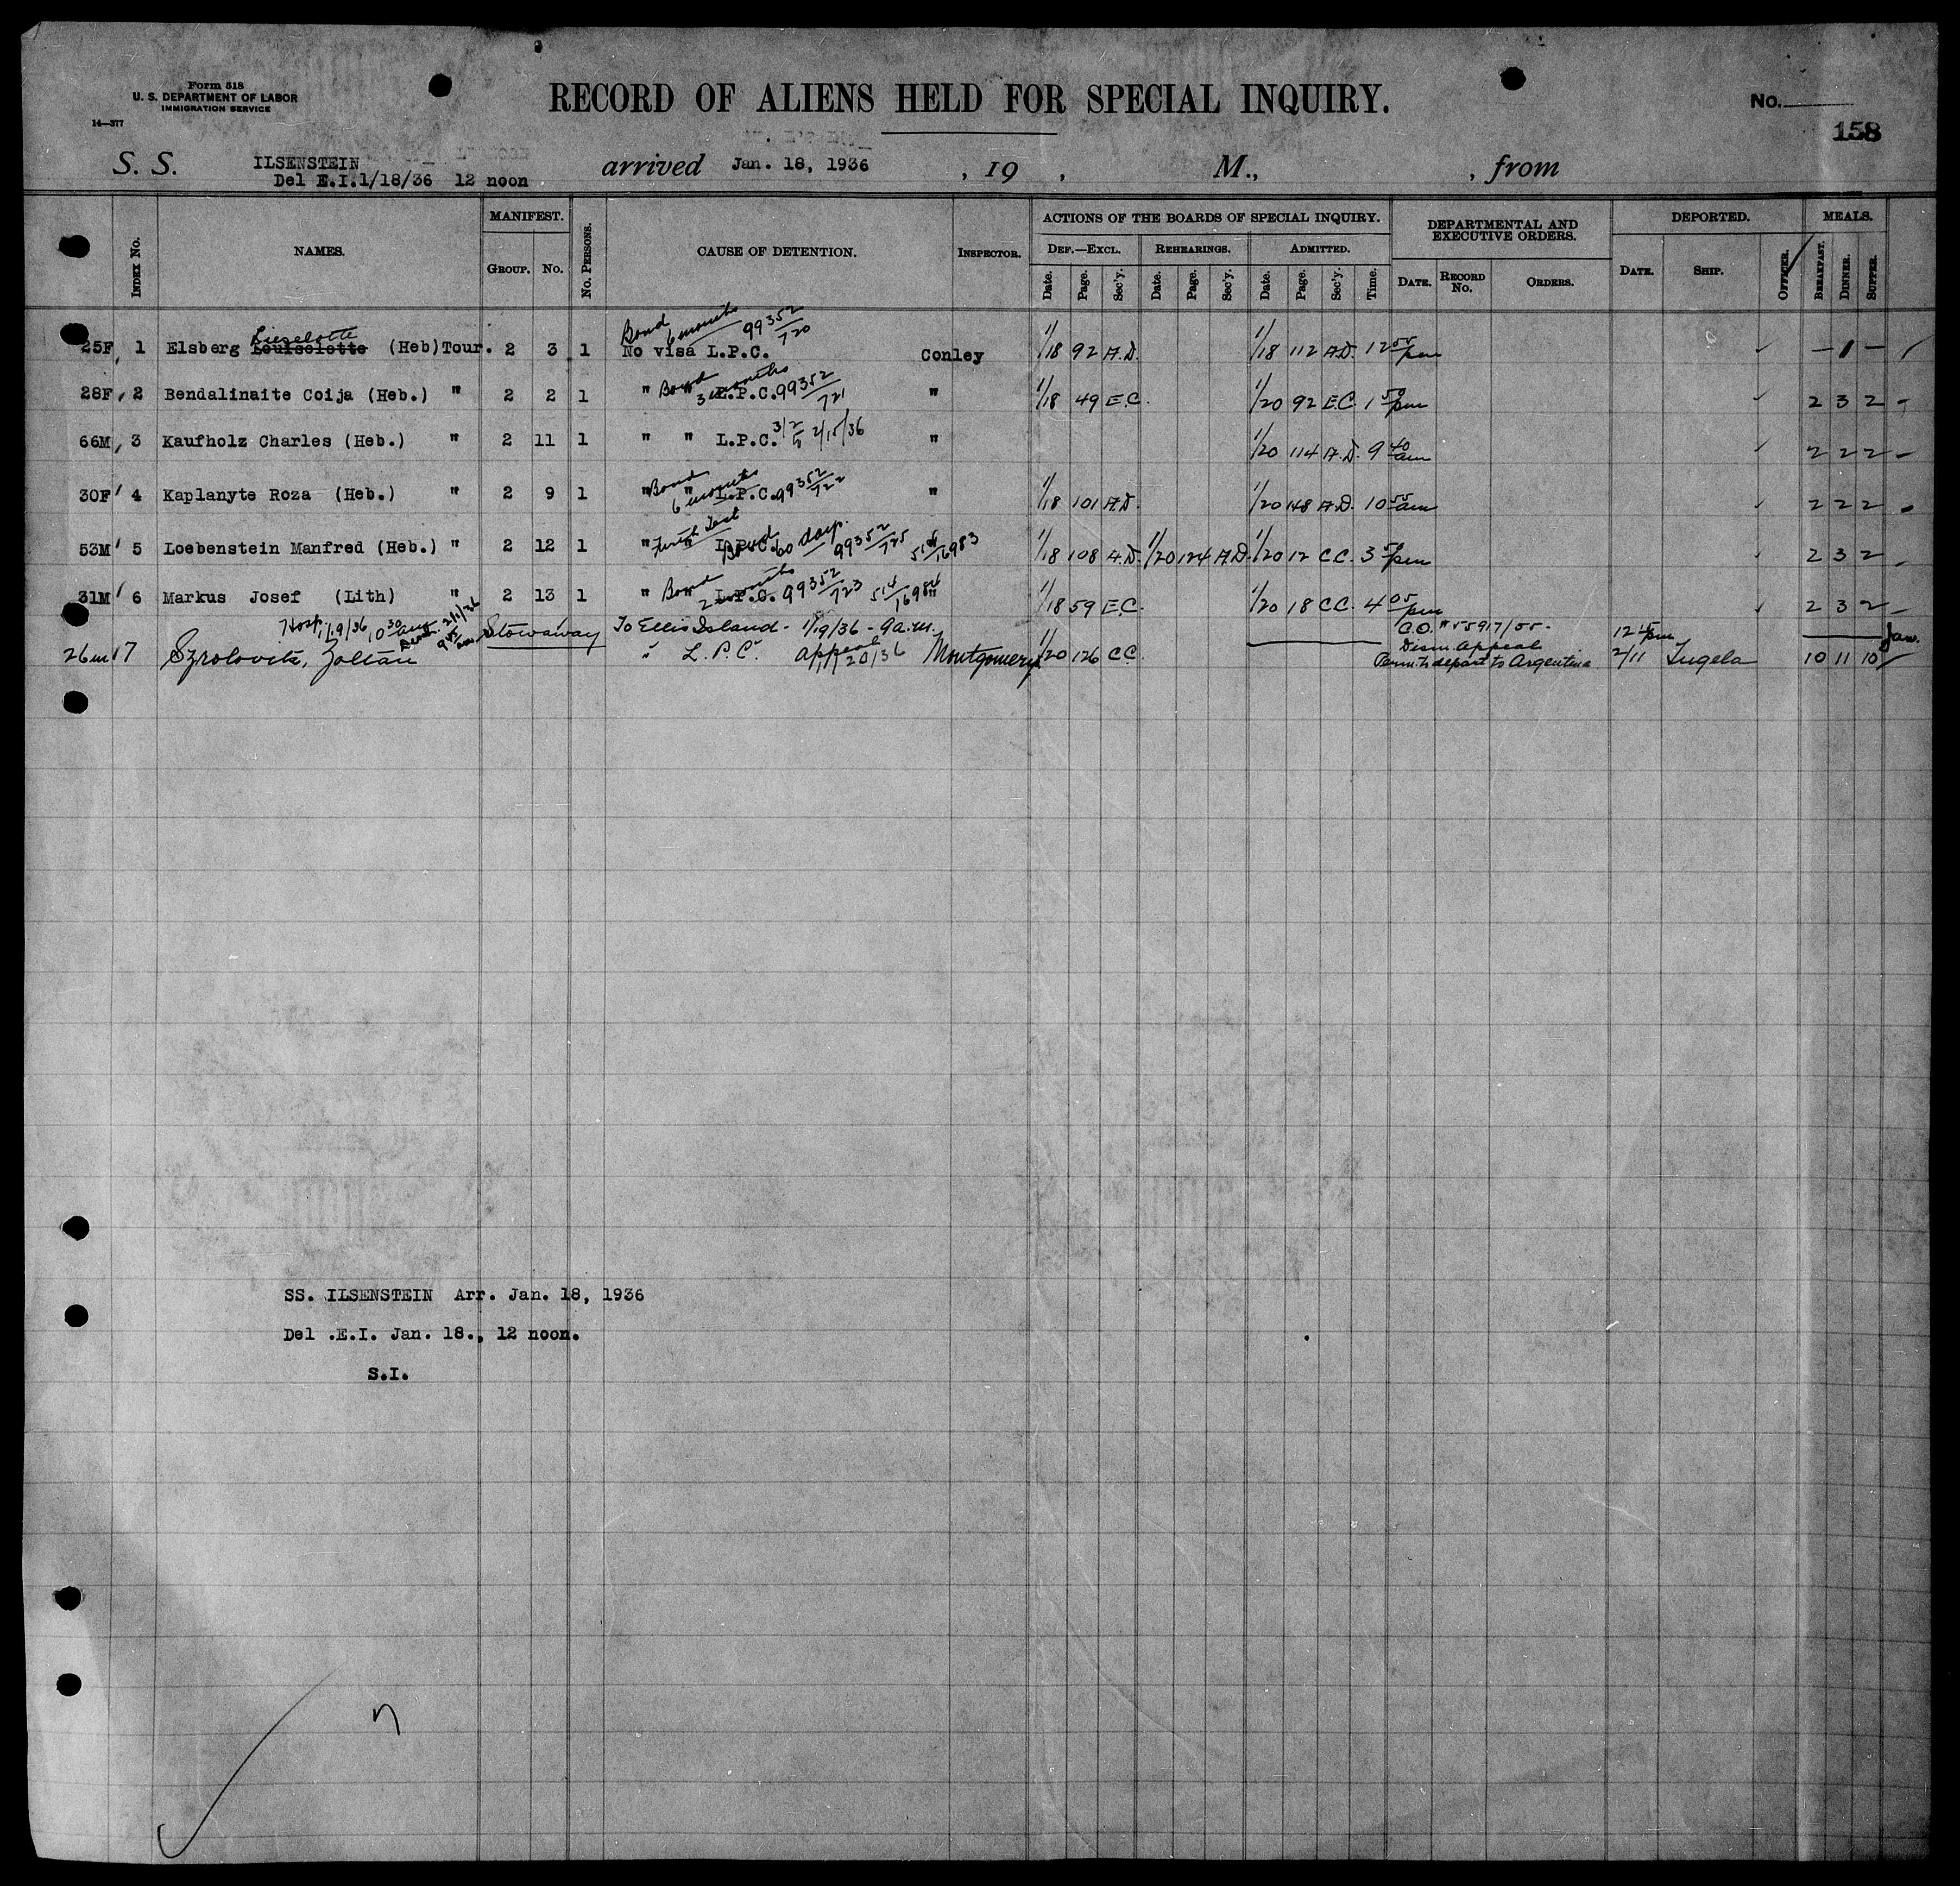 Form 518
U. S. DEPARTMENT OF LABOR
IMMIGRATION SERVICE
14—377
RECORD OF ALIENS HELD FOR SPECIAL INQUIRY.
No.
158
S. S. ILSENSTEIN arrived Jan. 18, 1936 , 19 , M., , from
Del E.I.1/18/36 12 noon
INDEX No. NAMES. MANIFEST. GROUP. No. No. PERSONS. CAUSE OF DETENTION. INSPECTOR. ACTIONS OF THE BOARDS OF SPECIAL INQUIRY. DEPARTMENTAL AND EXECUTIVE ORDERS. DEPORTED. MEALS.
DEF.—EXCL. REHEARINGS. ADMITTED.
Date. Page. Sec'y. Date. Page. Sec'y. Date. Page. Sec'y. Time. DATE. RECORD No. ORDERS. DATE. SHIP. OFFICER. BREAKFAST. DINNER. SUPPER.
Lieselotte Bond 6 months 99352/720
25F 1 Elsberg Louiselotte (Heb)Tour. 2 3 1 No visa L.P.C. Conley 1/18 92 A.D. 1/18 112 A.D. 12 55 pm — 1 —
Bond 3 months 99352/721
28F 2 Bendalinaite Coija (Heb.) " 2 2 1 " " L.P.C. " 1/18 49 E.C. 1/20 92 E.C. 1 50 pm 2 3 2
66M 3 Kaufholz Charles (Heb.) " 2 11 1 " " L.P.C. 2/15/36 " 1/20 114 A.D. 9 40 am 2 2 2
Bond 6 months 99352/722
30F 4 Kaplanyte Roza (Heb.) " 2 9 1 " " L.P.C. " 1/18 101 A.D. 1/20 148 A.D. 10 55 am 2 2 2
Bond 60 days. 99352/725
53M 5 Loebenstein Manfred (Heb.) " 2 12 1 " " L.P.C. 1/18 108 A.D. 1/20 124 A.D. 1/20 12 C.C. 3 50 pm 2 3 2
Bond 2 months 99352/723
31M 6 Markus Josef (Lith) " 2 13 1 " L.P.C. " 1/18 59 E.C. 1/20 18 C.C. 4 05 pm 2 3 2
Hosp. 1/19/36 10 30 am 2/1/36 9 45 am Stowaway To Ellis Island - 1/19/36 - 9 a.m. C.O. # 55917/55 - 12 45 pm Jan.
26m 7 Szrolovits, Zoltan " L.P.C. Appeal 1/20/36 Montgomery 1/20 126 C.C. Dism. Appeal
Permits depart to Argentina 2/11 Tugela 10 11 10
SS. ILSENSTEIN Arr. Jan. 18, 1936
Del .E.I. Jan. 18., 12 noon.
S.I.